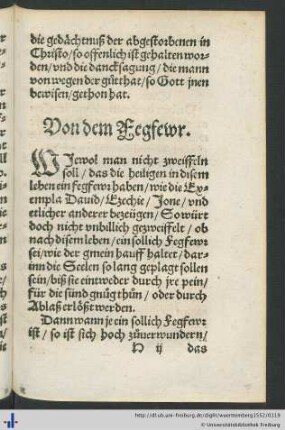 die gedächtnuß der abgestorbenen in
Christo/so offenlich ist gehalten wor-
den/vnd die dancksagung/die mann
von wegen der gůtthat/so Gott jnen
bewisen/gethon hat.
Von dem Fegfewr.
WJewol man nicht zweiffeln
soll/das die heiligen in disem
leben ein fegfewr haben/wie die Ex-
empla Dauid/Ezechie/Jone/vnd
etlicher anderer bezeügen/So würt
doch nicht vnbillich gezweiffelt/ob
nach disem leben/ein sollich Fegfewr
sei/wie der gmein hauff haltet/dar-
inn die Seelen so lang geplagt sollen
sein/biß sie eintweder durch jre pein/
für die sünd gnůg thün/oder durch
Ablaß erlößt werden.
Dann wann je ein sollich Fegfewr
ist/so ist sich hoch zůuerwundern/
das
http://dl.ub.uni-freiburg.de/diglit/wuerttemberg1552/0119
© Universitätsbibliothek Freiburg